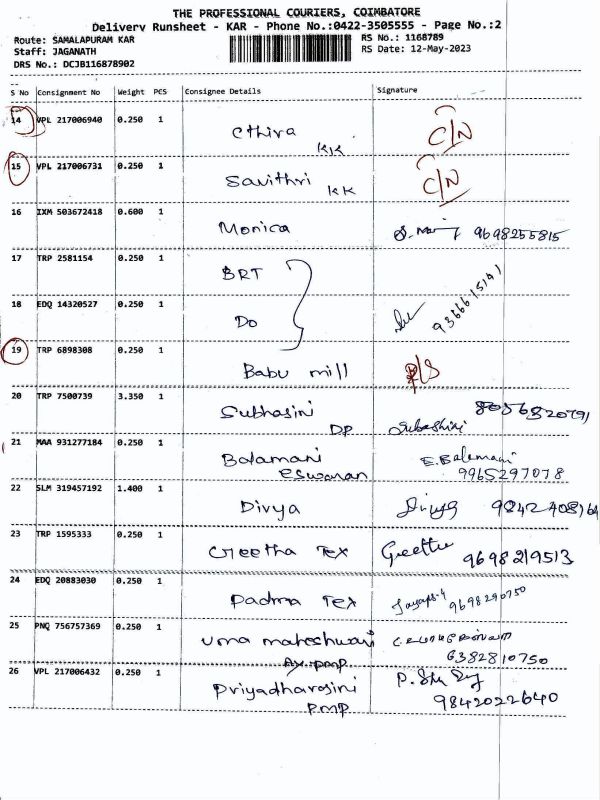 THE PROFESSIONAL COURIERS, COIMBATORE
Delivery Runsheet - KAR - Phone No.:0422-3505555 - Page No.:2
Route: SAMALAPURAM KAR
RS No.: 1168789
Staff: JAGANATH
RS Date: 12-May-2023
DRS No.: DCJB116878902
S No Consignment No Weight PCS Consignee Details Signature
14 VPL 217006940 0.250 1 Cthira KK C/N
15 VPL 217006731 0.250 1 Savithri KK C/N
16 IXM 503672418 0.600 1 Monica 9698255815
17 TRP 2581154 0.250 1 BRT
18 EDQ 14320527 0.250 1 Do 9366615191
19 TRP 6898308 0.250 1 Babu mill R/S
20 TRP 7500739 3.350 1 Subhasini DP Subashini 8056820791
21 MAA 931277184 0.250 1 Balamani E.Balamani
eswaran 9965297078
22 SLM 319457192 1.400 1 Divya Divya
23 TRP 1595333 0.250 1 Geetha Tex Geetha 9698219513
24 EDQ 20883030 0.250 1 Padma Tex 9698290750
25 PNQ 756757369 0.250 1 Uma maheshwari
6382810750
26 VPL 217006432 0.250 1 Priyadharsini
PMP 9842022640